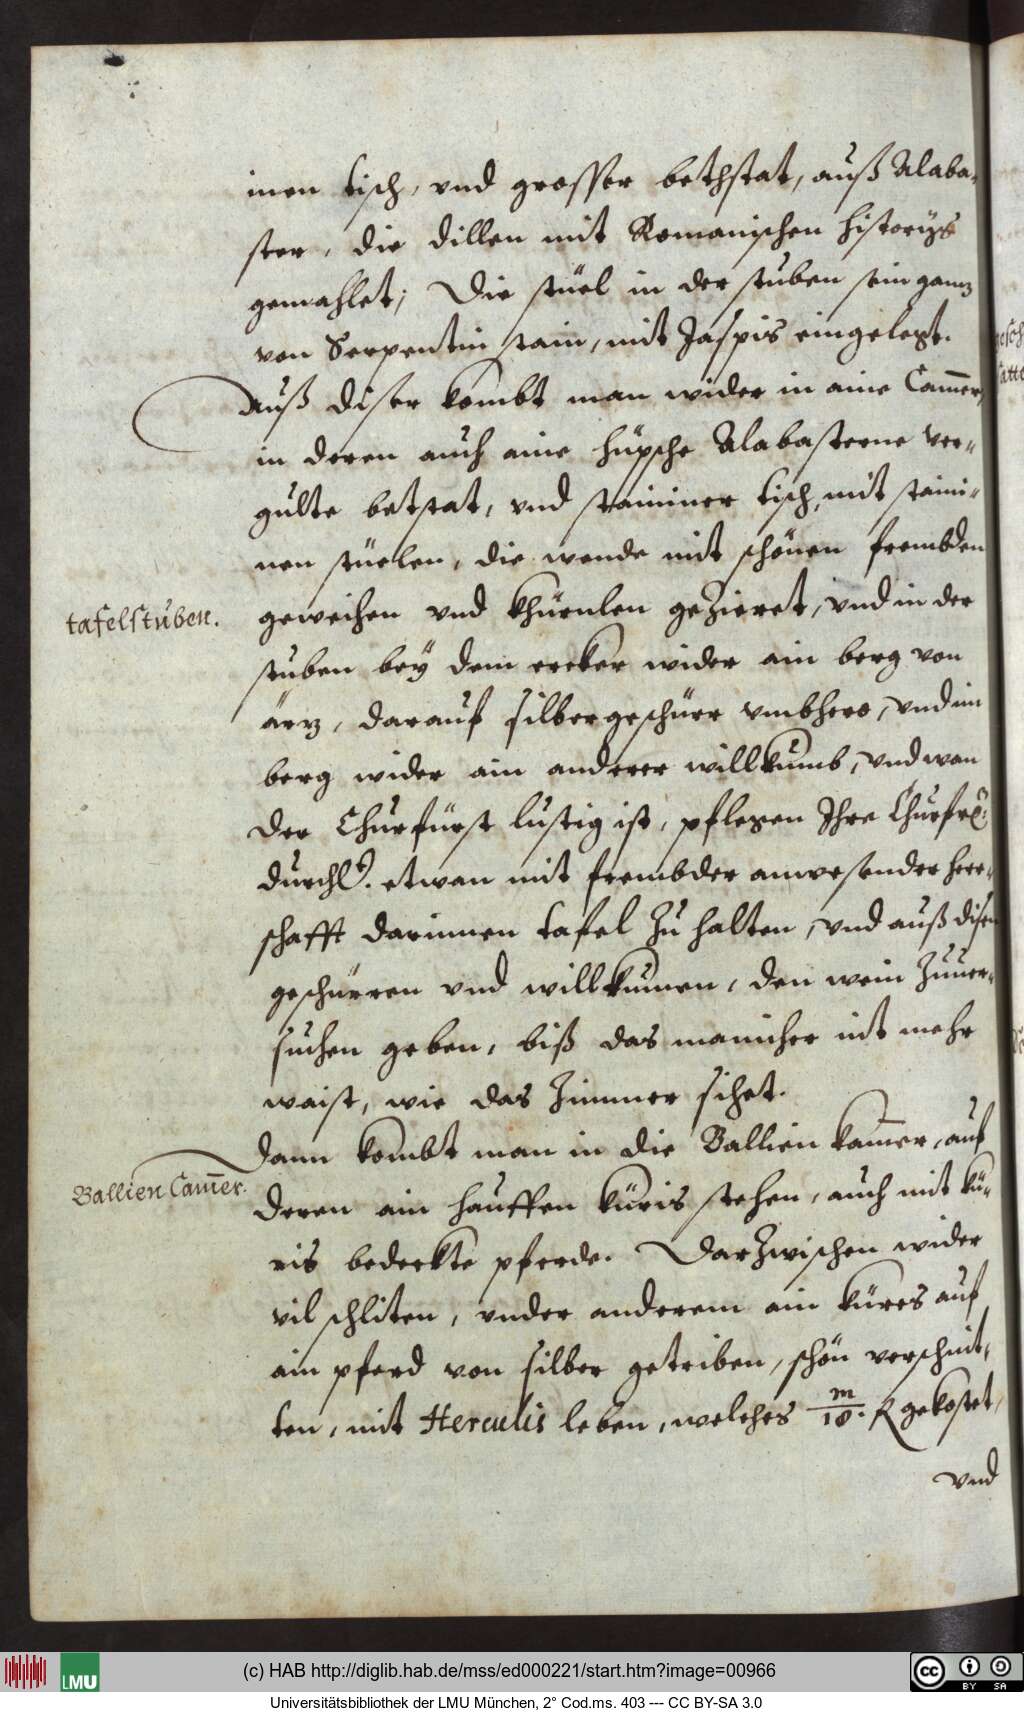 inen tisch, vnd grosser bethstat, auß Alaba-
ster, die dillen mit Romanischen historijs
gemahlet; Die stüel in der stuben sein ganz
von Serpentin stain, mit Jaspis eingelegt.
Auß diser kombt man wider in aine Cam̄er,
in deren auch aine hüpsche Alabasterne ver-
gulte betstat, vnd staininer tisch, mit staini-
nen stüelen, die wende mit schönen frembden
tafelstuben.
geweihen vnd khürnlen gezieret, vnd in der
stuben bey dem ercker wider ain berg von
ärz, darauf silbergeschürr vmbhero, vnd im
berg wider ain anderer willkumb, vnd wan
der Churfürst lustig ist, pflegen Ihre Churfr:
durchl. etwan mit frembder anwesender herr-
schafft darinnen tafel zu halten, vnd auß disen
geschürren vnd willkumen, den wein zuuer-
suchen geben, biß das mannicher nit mehr
waist, wie das zimmer sihet.
Dann kombt man in die Ballien kam̄er, auf
Ballien Cam̄er.
deren ain hauffen küris stehen, auch mit kü-
ris bedeckte pferde. Darzwischen wider
vil schliten, vnder anderem ain küres auf
ain pferd von silber getriben, schön verschnit-
ten, mit Herculis leben, welches m/18. R gekostet,
vnd
(c) HAB http://diglib.hab.de/mss/ed000221/start.htm?image=00966
LMU
CC BY SA
Universitätsbibliothek der LMU München, 2° Cod.ms. 403 --- CC BY-SA 3.0